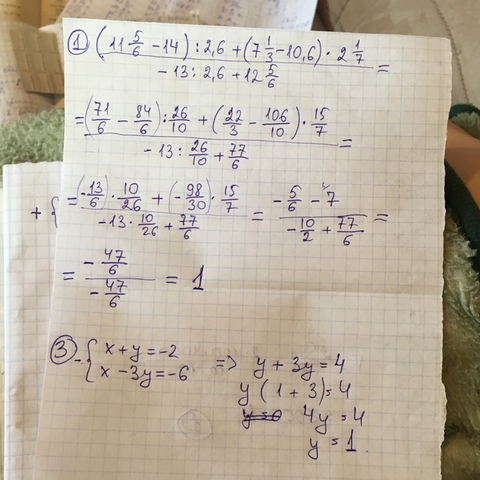 ① (11 5/6 - 14) : 2,6 + (7 1/3 - 10,6) · 2 1/7
- 13 : 2,6 + 12 5/6 =
= (71/6 - 84/6) : 26/10 + (22/3 - 106/10) · 15/7
- 13 : 26/10 + 77/6 =
= (-13/6) · 10/26 + (-98/30) · 15/7
-13 · 10/26 + 77/6 = - 5/6 - 7
- 10/2 + 77/6 =
= - 47/6
- 47/6 = 1
+ {
③ - { x + y = -2 => y + 3y = 4
x - 3y = -6 y (1 + 3) = 4
y = 0 4y = 4
y = 1.